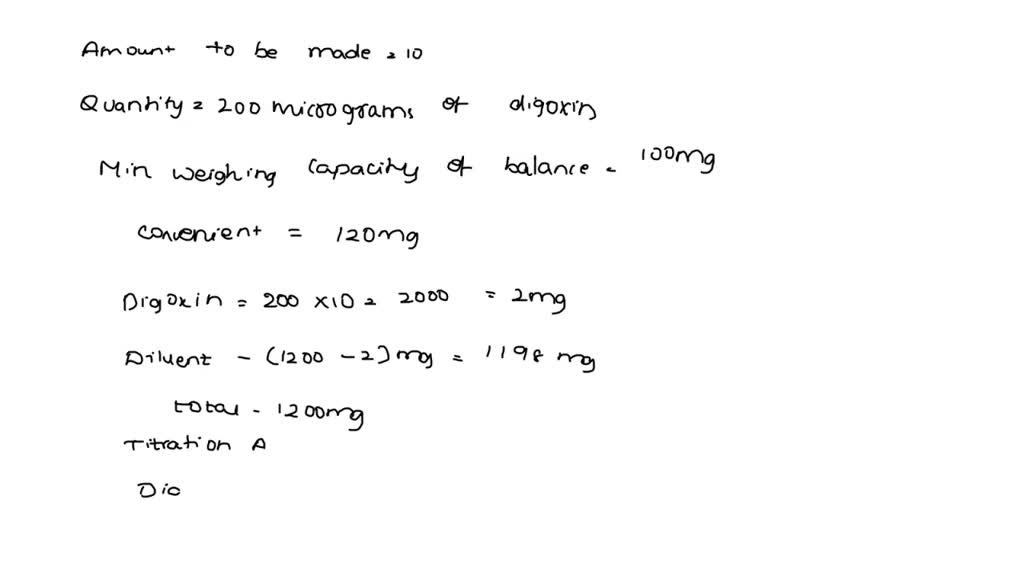 Amount to be made = 10
Quantity = 200 micrograms of digoxin
Min weighing capacity of balance = 100mg
convenient = 120mg
Digoxin = 200 x10 = 2000 = 2mg
Diluent - (1200 - 2) mg = 1198 mg
total - 1200mg
Titration A
Dig